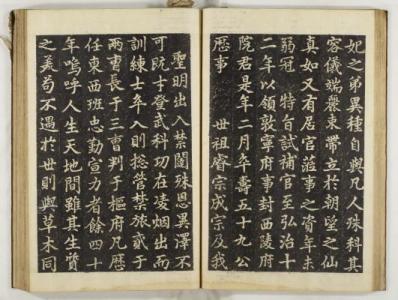 妃之弟異種自與凡人殊科其
容儀端嚴束帶立於朝望之仙
真如又有居官莅事之資年未
弱冠 特旨試補官至弘治十
二年以領敦寧府事封西陵府
院君是年二月卒壽五十九公
歷事 世祖睿宗成宗及我
聖明出入禁闥殊恩異澤不
可旣才登武科功在凌烟出而
訓練士卒入則摠管禁旅貳于
兩曹長于三曹判于樞府凡歷
任東西班忠勤宣力者餘四十
年嗚呼人生天地間雖其生質
之美苟不遇於世則與草木同